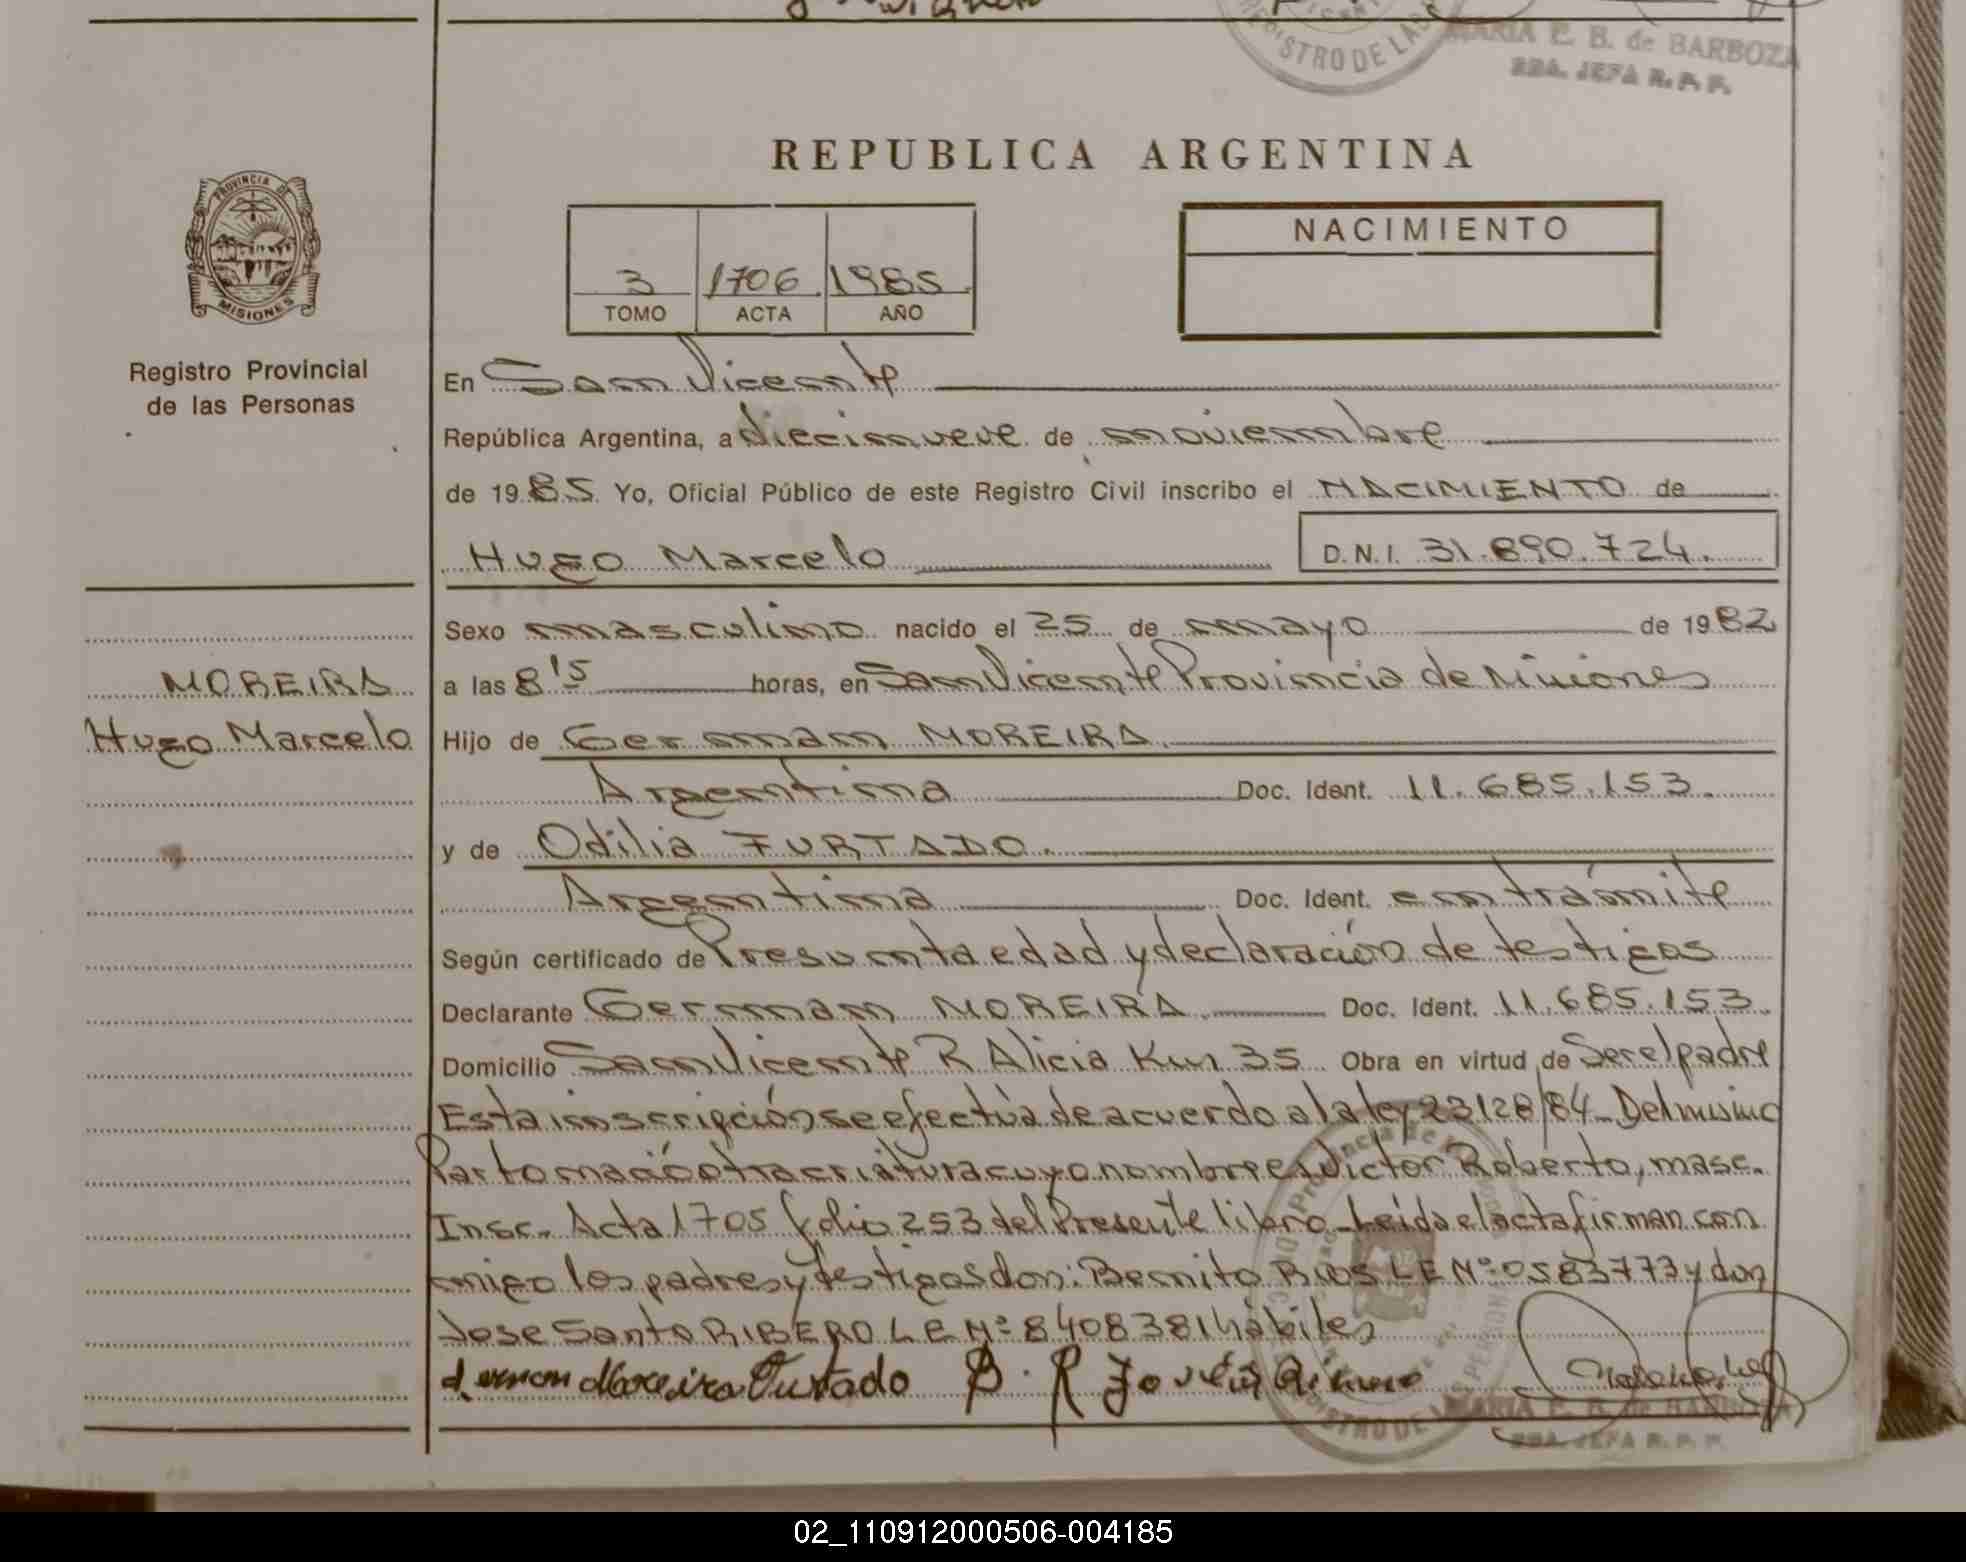 REGISTRO DE LAS
MARIA E. B. de BARBOZA
SBA. JEFA R. P. P.
REPUBLICA ARGENTINA
PROVINCIA DE
MISIONES
Registro Provincial
de las Personas
3 1706 1985
TOMO ACTA AÑO
NACIMIENTO
En San Vicente
República Argentina, a diecinueve de noviembre
de 1985 Yo, Oficial Público de este Registro Civil inscribo el NACIMIENTO de
Hugo Marcelo D.N.I. 31.890.724.
MOREIRA
Hugo Marcelo
Sexo masculino nacido el 25 de mayo de 1982
a las 8 15 horas, en San Vicente Provincia de Misiones
Hijo de German MOREIRA.
Argentina Doc. Ident. 11.685.153.
y de Odilia FURTADO.
Argentina Doc. Ident. en trámite
Según certificado de Presunta edad y declaración de testigos
Declarante German MOREIRA. Doc. Ident. 11.685.153.
Domicilio San Vicente R Alicia Km 35 Obra en virtud de Ser el padre
Esta inscripción se efectúa de acuerdo a la ley 23128/84_ Del mismo
Parto nació otra criatura cuyo nombre es Victor Roberto, masc.
Insc. Acta 1705 folio 253 del Presente libro_ Leída el acta firman con
migo los padres y testigos don: Bernito RIOS L E Nº 0583773 y don
Jose Santo RIBERO L E Nº 8408381 hábiles
German Moreira Furtado B. R
MARIA E. B. de BARBOZA
SBA. JEFA R. P. P.
02_110912000506-004185